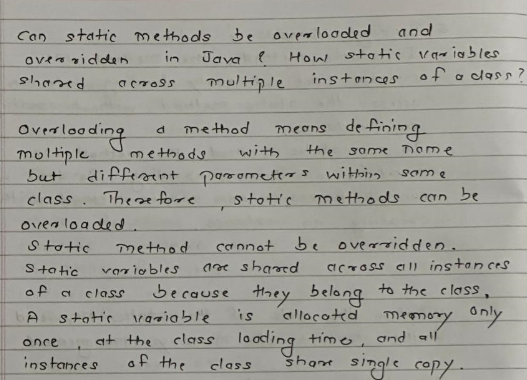 Can static methods be overloaded and
overridden in Java ? How static variables
shared across multiple instances of a class?
Overloading a method means defining
multiple methods with the same name
but different parameters within same
class. Therefore , static methods can be
overloaded.
Static method cannot be overridden.
Static variables are shared across all instances
of a class because they belong to the class,
A static variable is allocated memory only
once , at the class loading time, and all
instances of the class share single copy.